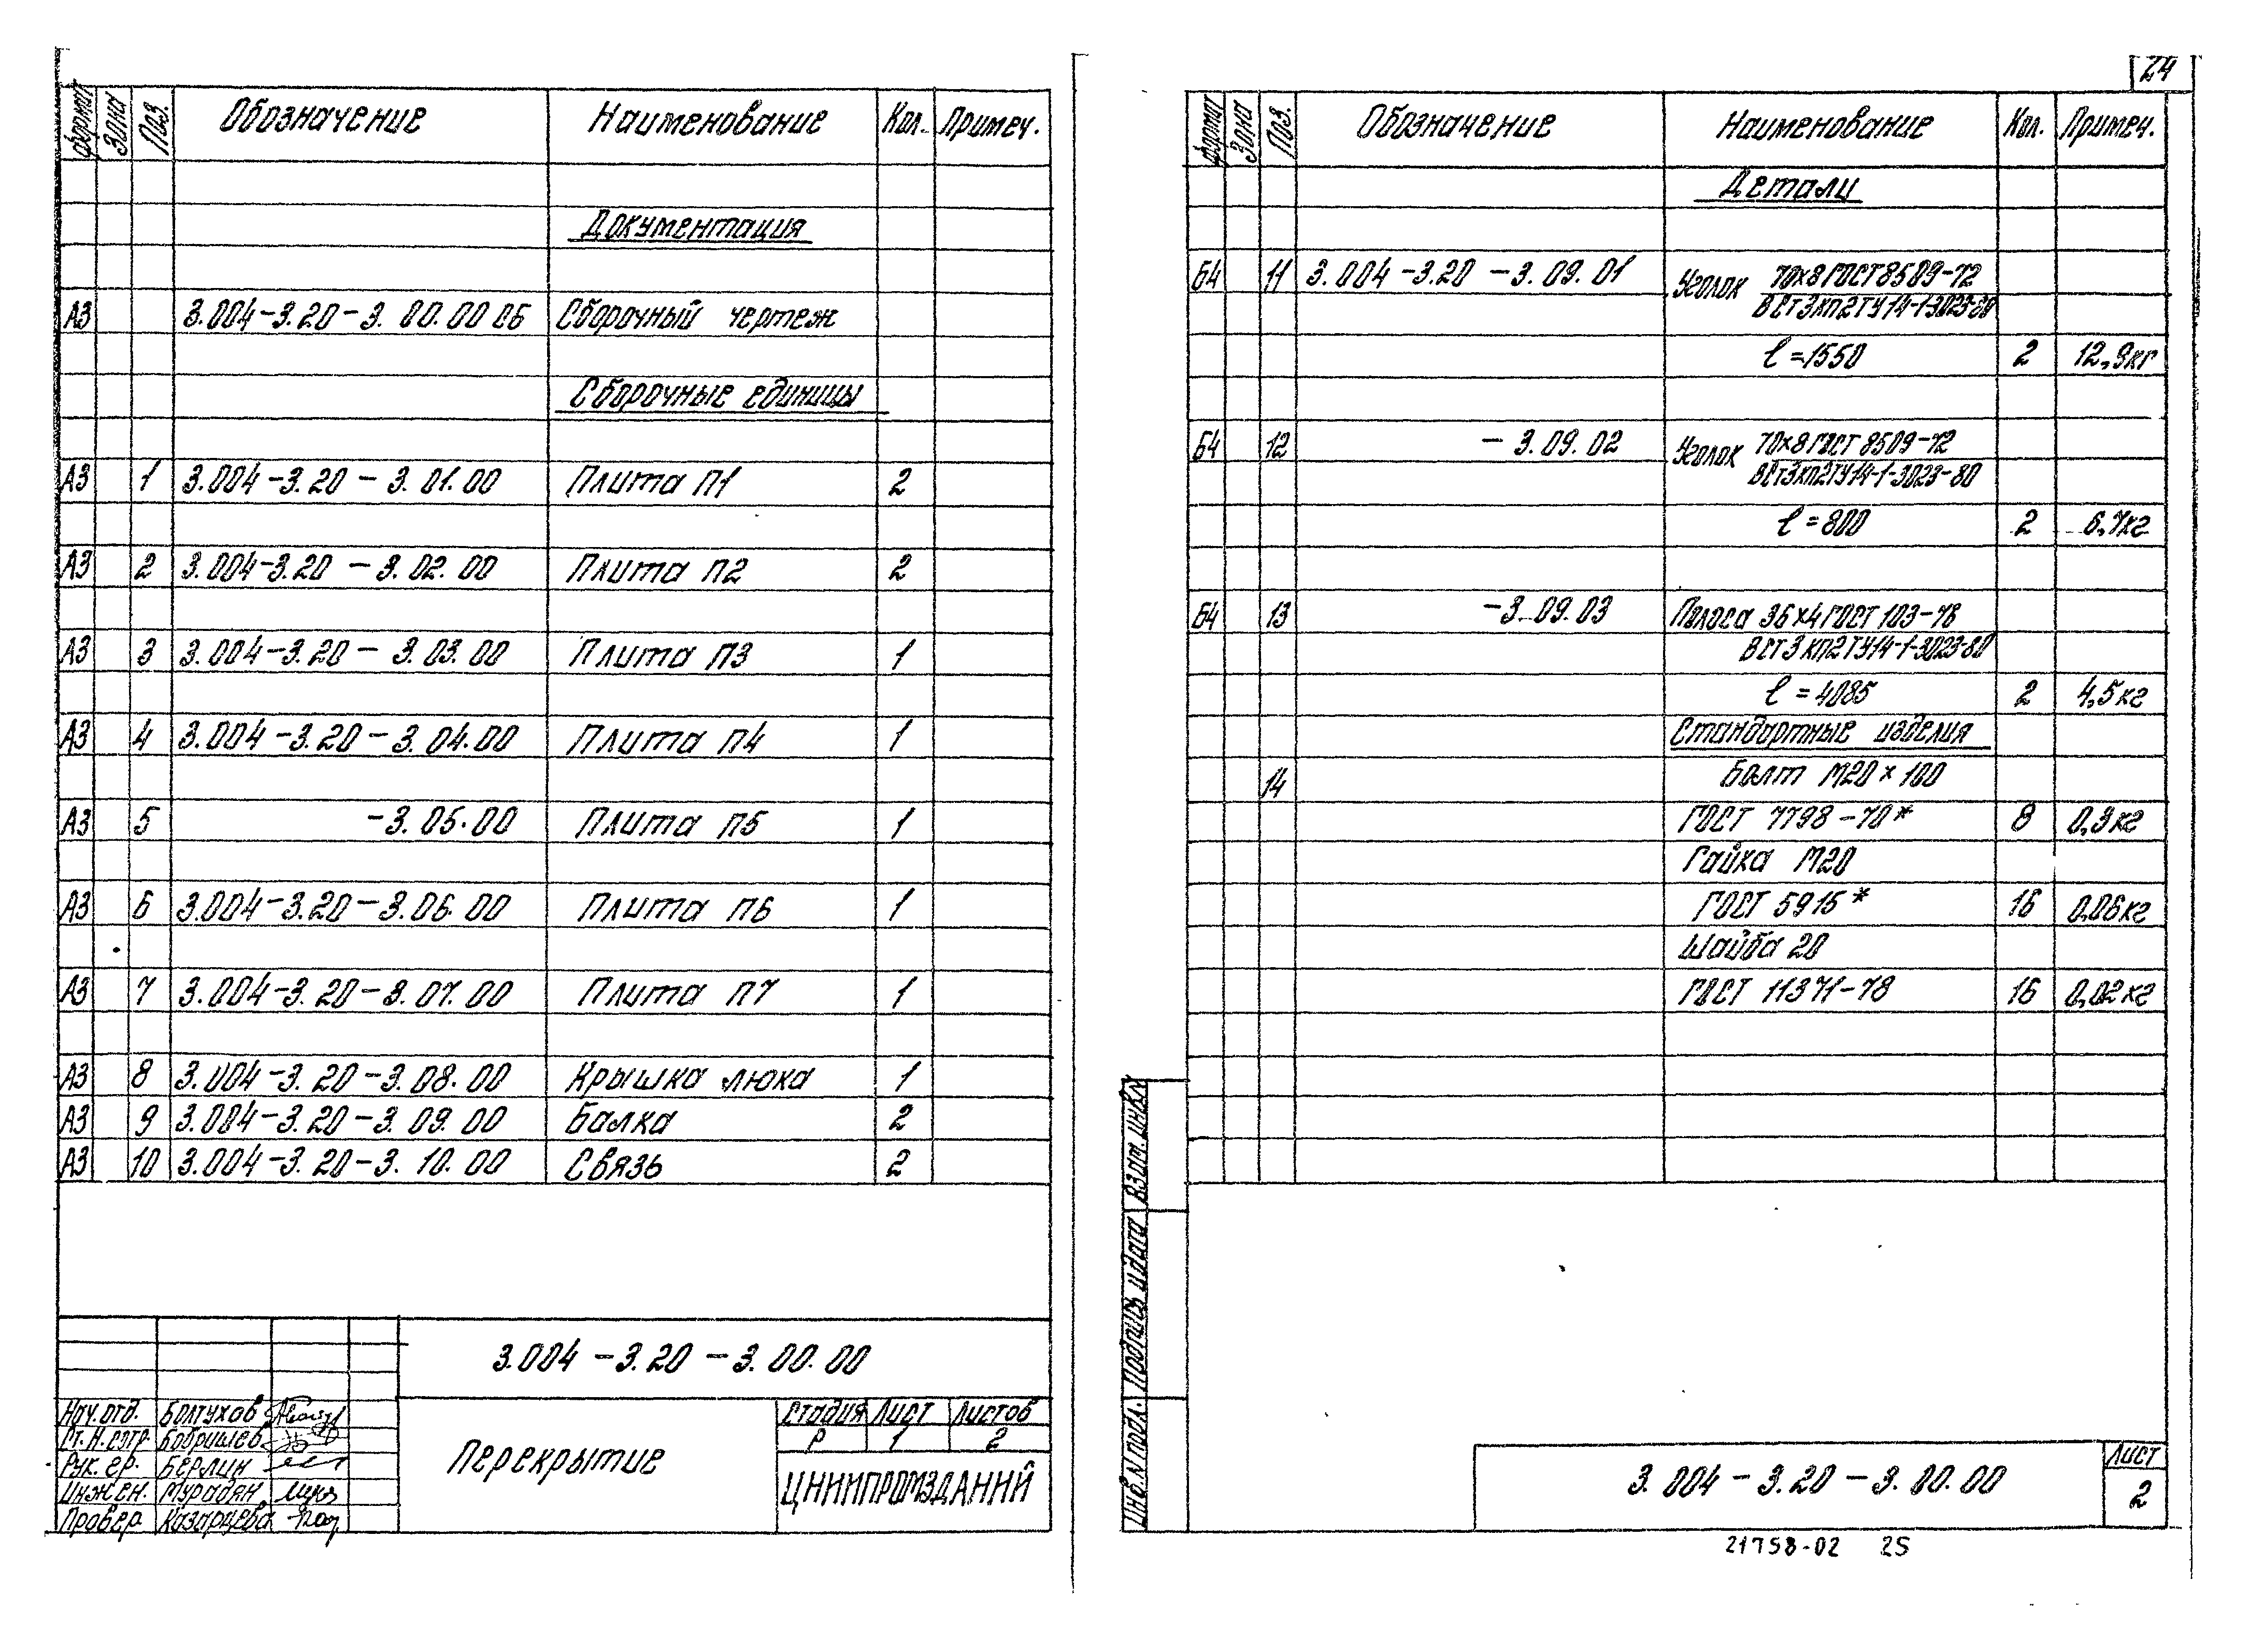 формат Зона Поз. Обозначение Наименование Кол. Примеч.
Документация
А3 3.004-3.20-3.00.00 СБ Сборочный чертеж
Сборочные единицы
А3 1 3.004-3.20-3.01.00 Плита П1 2
А3 2 3.004-3.20-3.02.00 Плита П2 2
А3 3 3.004-3.20-3.03.00 Плита П3 1
А3 4 3.004-3.20-3.04.00 Плита П4 1
А3 5 -3.05.00 Плита П5 1
А3 6 3.004-3.20-3.06.00 Плита П6 1
А3 7 3.004-3.20-3.07.00 Плита П7 1
А3 8 3.004-3.20-3.08.00 Крышка люка 1
А3 9 3.004-3.20-3.09.00 Балка 2
А3 10 3.004-3.20-3.10.00 Связь 2
3.004-3.20-3.00.00
Нач. отд. Болтухов
Ст. н. сотр. Бобришев
Рук. гр. Берлин
Инжен. Мурадян
Провер. Казарцева
Перекрытие
Стадия Лист Листов
Р 1 2
ЦНИИПРОМЗДАНИЙ
24
формат Зона Поз. Обозначение Наименование Кол. Примеч.
Детали
Б4 11 3.004-3.20-3.09.01 Уголок 70х8 ГОСТ 8509-72
ВСт3кп2 ТУ14-1-3023-80
ℓ=1550 2 12,9кг
Б4 12 -3.09.02 Уголок 70х8 ГОСТ 8509-72
ВСт3кп2 ТУ14-1-3023-80
ℓ=800 2 6,7кг
Б4 13 -3.09.03 Полоса 36х4 ГОСТ 103-78
ВСт3кп2 ТУ14-1-3023-80
ℓ=4085 2 4,5кг
Стандартные изделия
14 Болт М20х100
ГОСТ 7798-70* 8 0,3кг
Гайка М20
ГОСТ 5915* 16 0,06кг
Шайба 20
ГОСТ 11371-78 16 0,02кг
Инв. N подл. Подпись и дата Взам. инв. N
3.004-3.20-3.00.00
Лист
2
21758-02 25